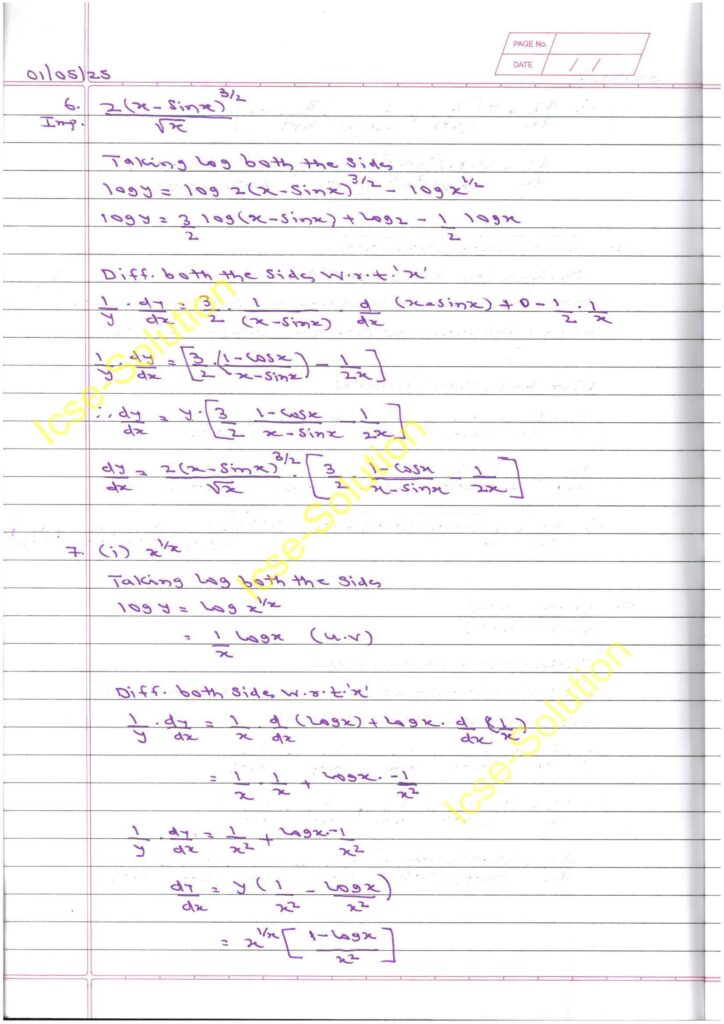 PAGE No.
DATE / /
01/05/25
6. 2(x-sinx)^3/2 / √x
Imp.
Taking log both the sides
logy = log 2(x-sinx)^3/2 - logx^1/2
logy = 3/2 log(x-sinx) + log2 - 1/2 logx
Diff. both the sides w.r.t. 'x'
1/y · dy/dx = 3/2 · 1/(x-sinx) · d/dx (x-sinx) + 0 - 1/2 · 1/x
1/y · dy/dx = [3/2 · (1-cosx/x-sinx) - 1/2x]
∴ dy/dx = y · [3/2 1-cosx/x-sinx - 1/2x]
dy/dx = 2(x-sinx)^3/2 / √x · [3/2 1-cosx/x-sinx - 1/2x]
7. (i) x^1/x
Taking log both the sides
logy = log x^1/x
= 1/x logx (u.v)
Diff. both sides w.r.t. 'x'
1/y · dy/dx = 1/x · d/dx (logx) + logx · d/dx (1/x)
= 1/x · 1/x + logx · -1/x²
1/y · dy/dx = 1/x² + logx·-1/x²
dy/dx = y (1/x² - logx/x²)
= x^1/x [1-logx/x²]
Icse-Solution
Icse-Solution
Icse-Solution